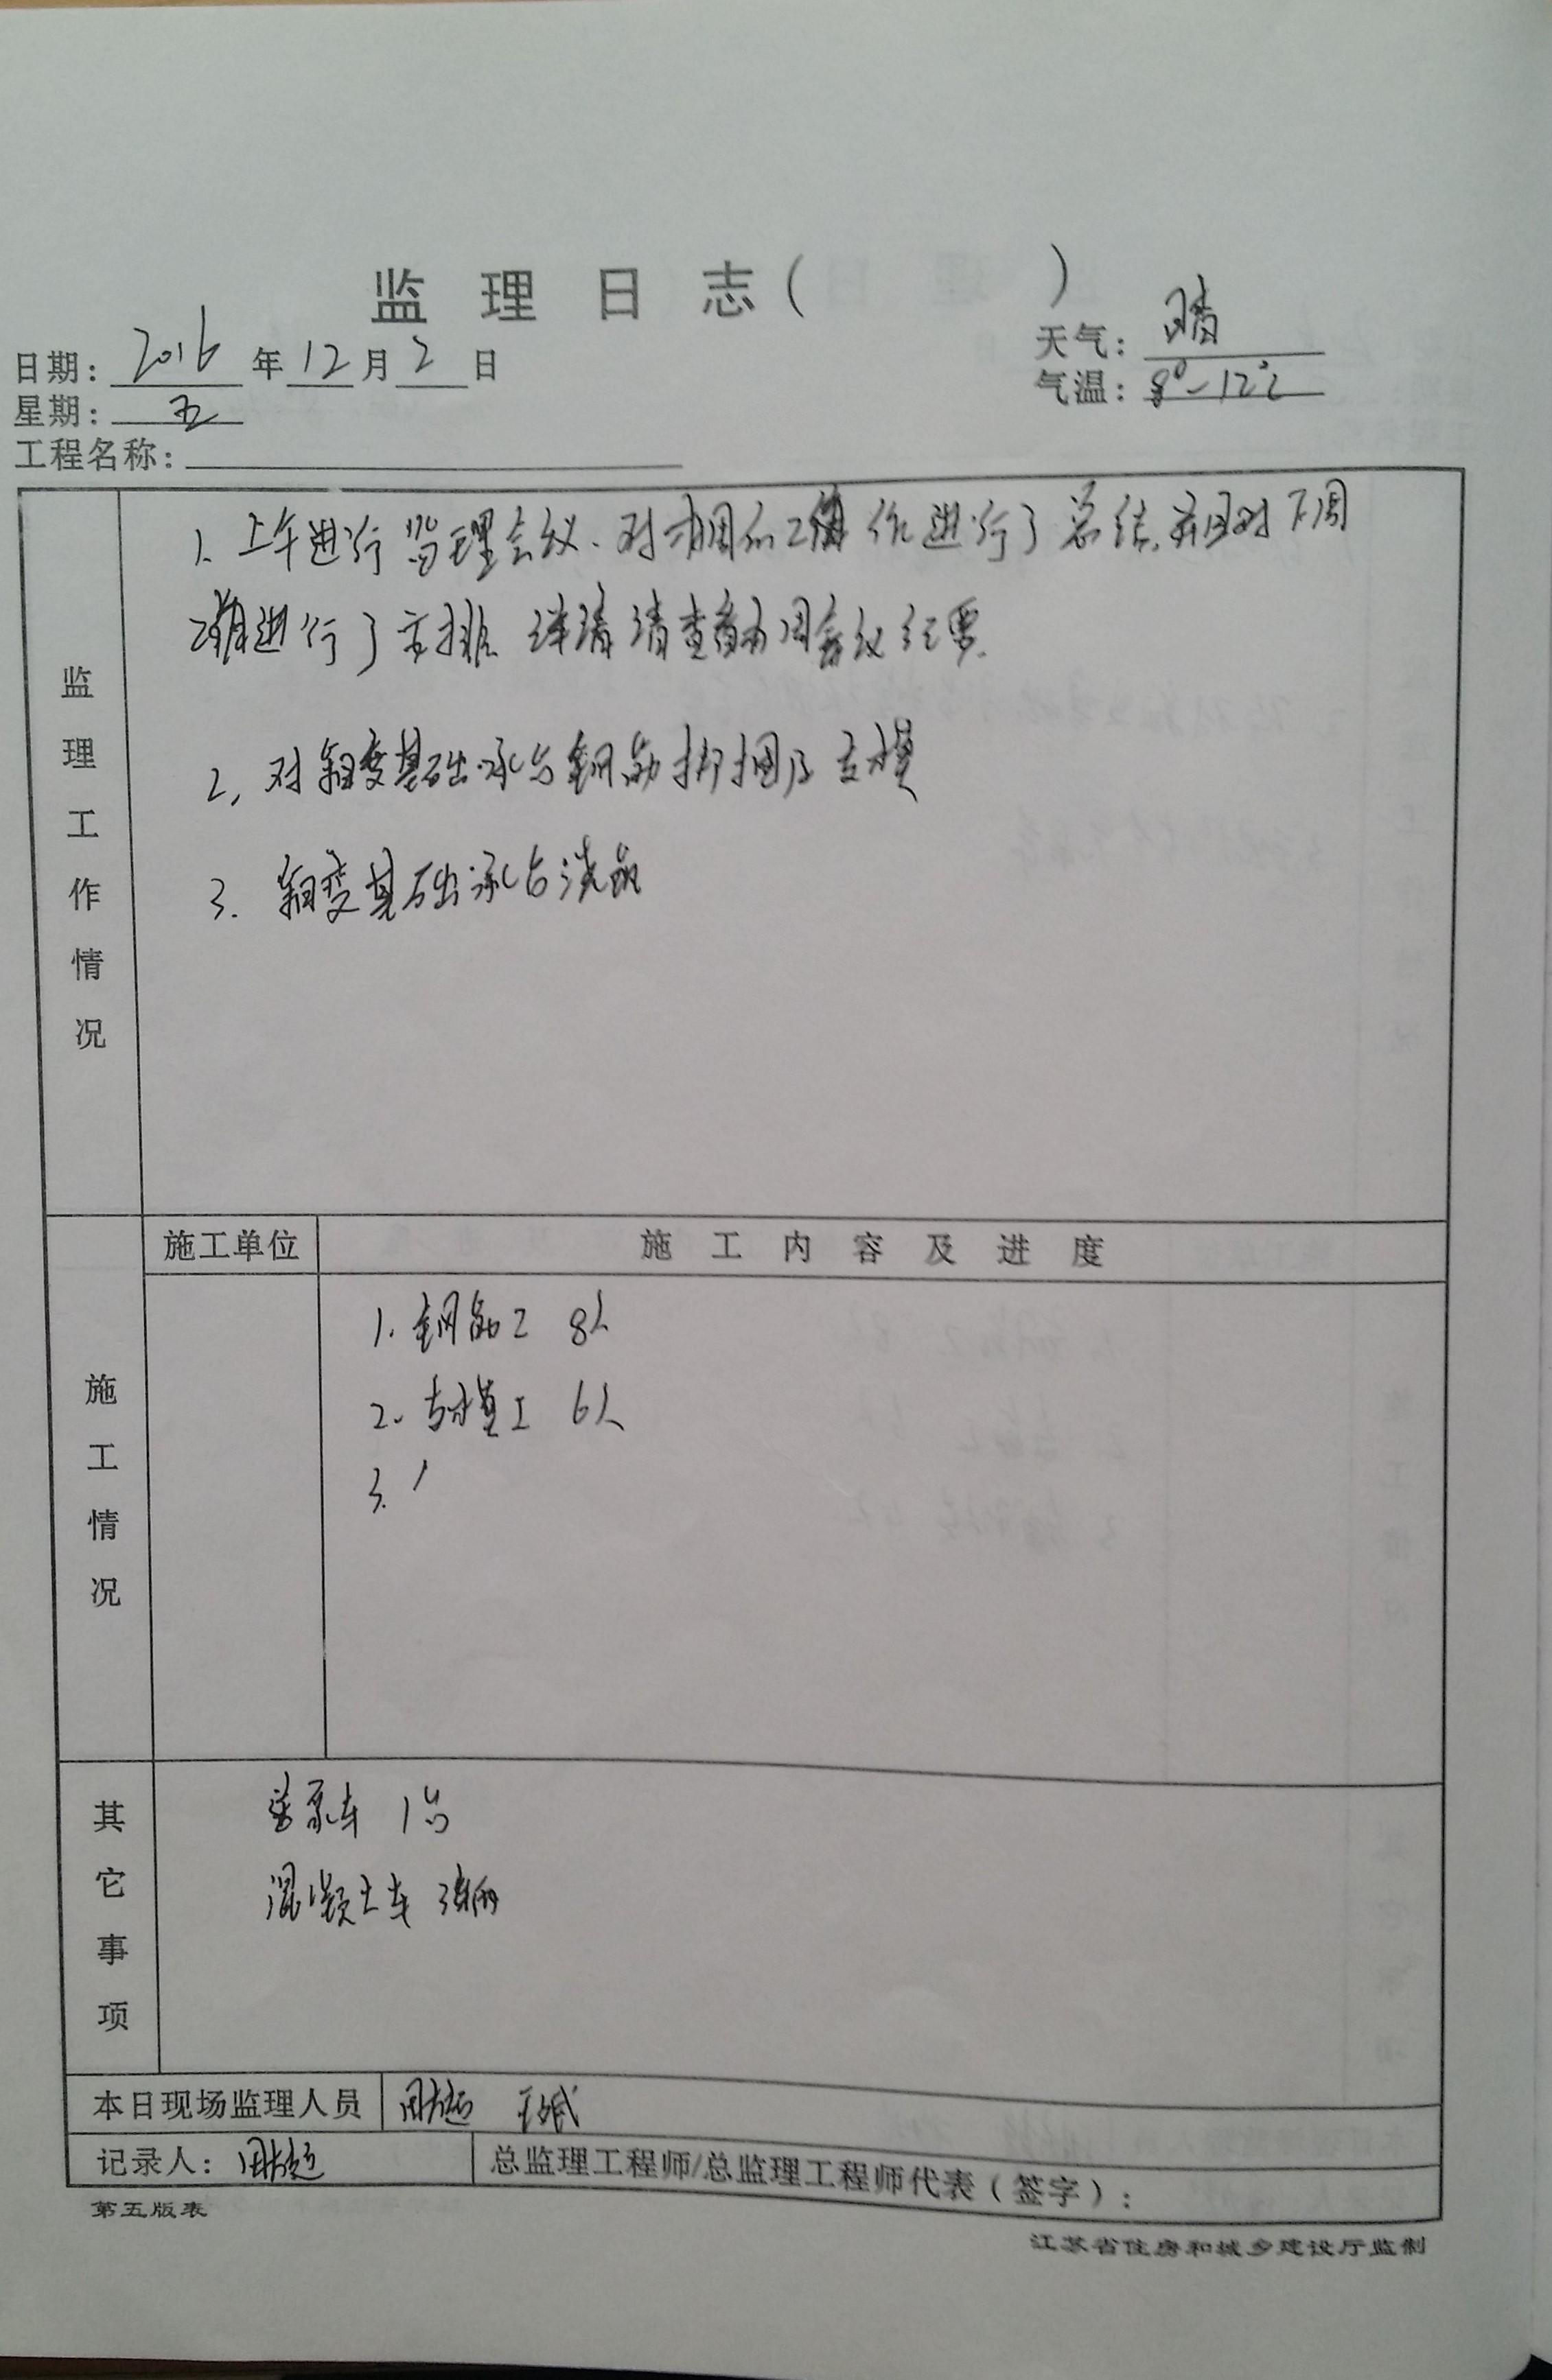 监理日志( )
日期: 2016 年 12 月 2 日
天气: 晴
气温: 8°-12℃
星期: 五
工程名称:
监理工作情况
1. 上午进行监理会议. 对本周的工作进行了总结, 并且对下周
进行了安排 详情请查看本周会议纪要.
2. 对箱变基础承台钢筋绑捆及支模
3. 箱变基础承台浇筑
施工情况
施工单位
施工内容及进度
1. 钢筋工 8人
2. 支模工 6人
3. /
其它事项
泵车 1台
混凝土车 3辆
本日现场监理人员
记录人:
总监理工程师/总监理工程师代表(签字):
第五版表
江苏省住房和城乡建设厅监制